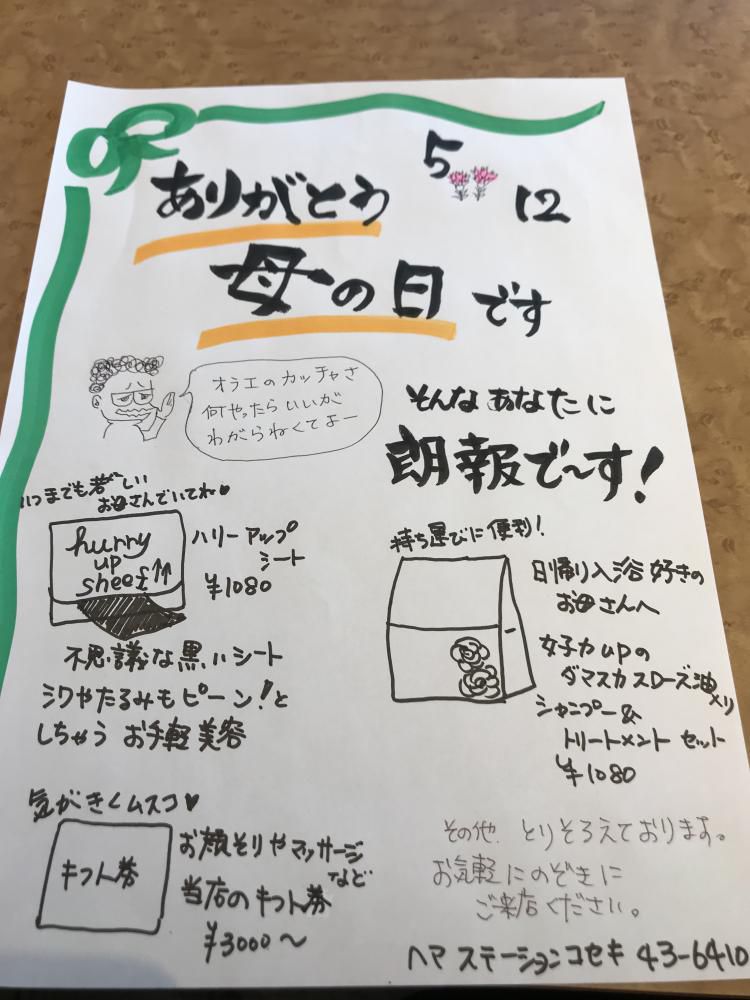 5 12
ありがとう
母の日です
オラエのカッチャさ
何やったらいいが
わがらねくてよー
そんなあなたに
朗報で〜す!
いつまでも若々しい
お母さんでいてね♥
hurry
up
sheet↑↑
ハリーアップ
シート
¥1080
不思議な黒いシート
シワやたるみもピーン!と
しちゃう お手軽美容
持ち運びに便利!
日帰り入浴好きの
お母さんへ
女子力upの
ダマスカスローズ油入り
シャンプー&
トリートメント セット
¥1080
気がきくムスコ♥
キフト券
お顔そりやマッサージ
など
当店のキフト券
¥3000〜
その他、とりそろえております。
お気軽にのぞきに
ご来店ください。
ヘアステーションコセキ 43-6410